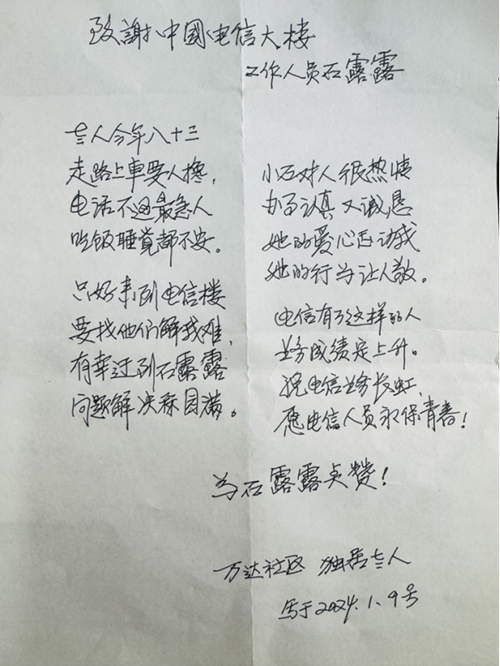 致謝中國电信大楼
工作人员石露露
老人今年八十三
走路上車要人搀，
电话不通最急人
吃饭睡觉都不安。
只好来到电信楼
要找他们解我难，
有幸过到石露露
问题解决称园满。
小石对人很热情
办事认真又诚恳
她的爱心感动我
她的行为让人敬。
电信有了这样的人
业务成绩定上升。
祝电信业务长虹，
愿电信人员永保青春！
为石露露点赞！
万达社区 独居老人
写于2024.1.9号